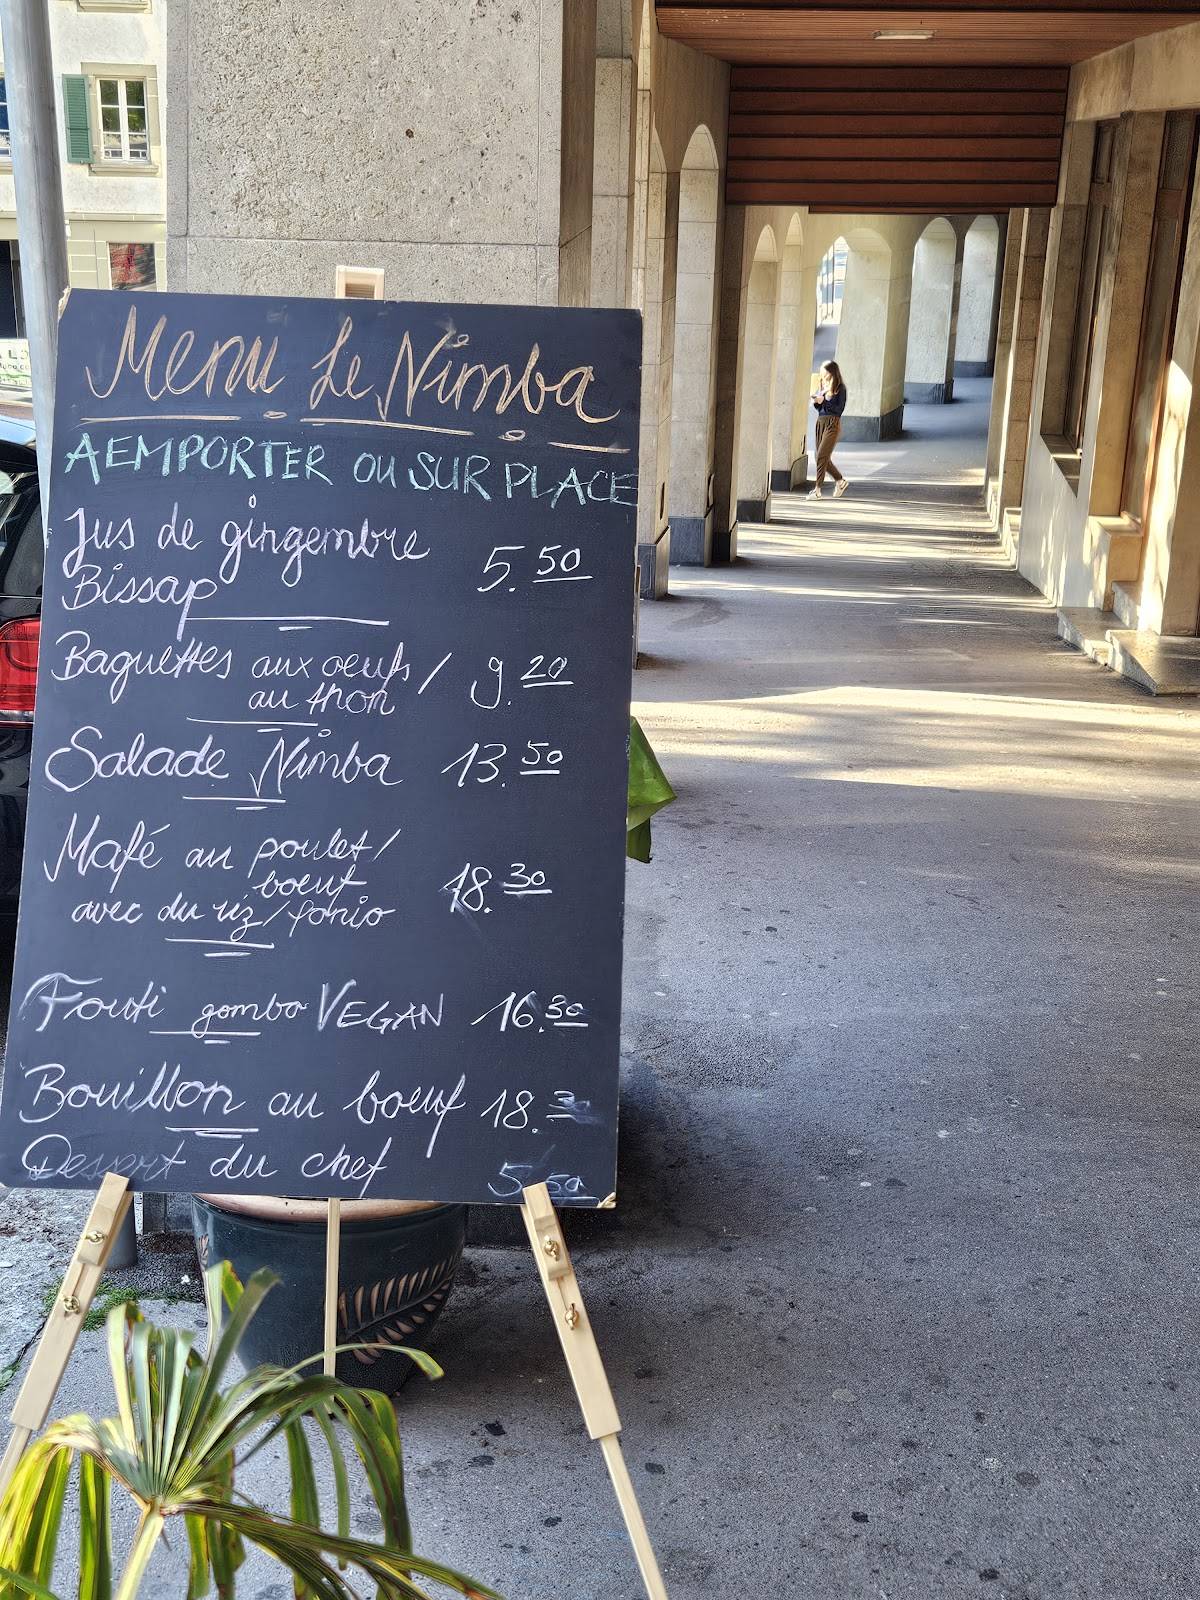 Menu Le Nimba
A EMPORTER OU SUR PLACE
Jus de gingembre
Bissap 5.50
Baguettes aux oeufs / 9.20
au thon
Salade Nimba 13.50
Mafé au poulet/
boeuf 18.30
avec du riz/fonio
Fouti gombo VEGAN 16.30
Bouillon au boeuf 18.30
Dessert du chef 5.50